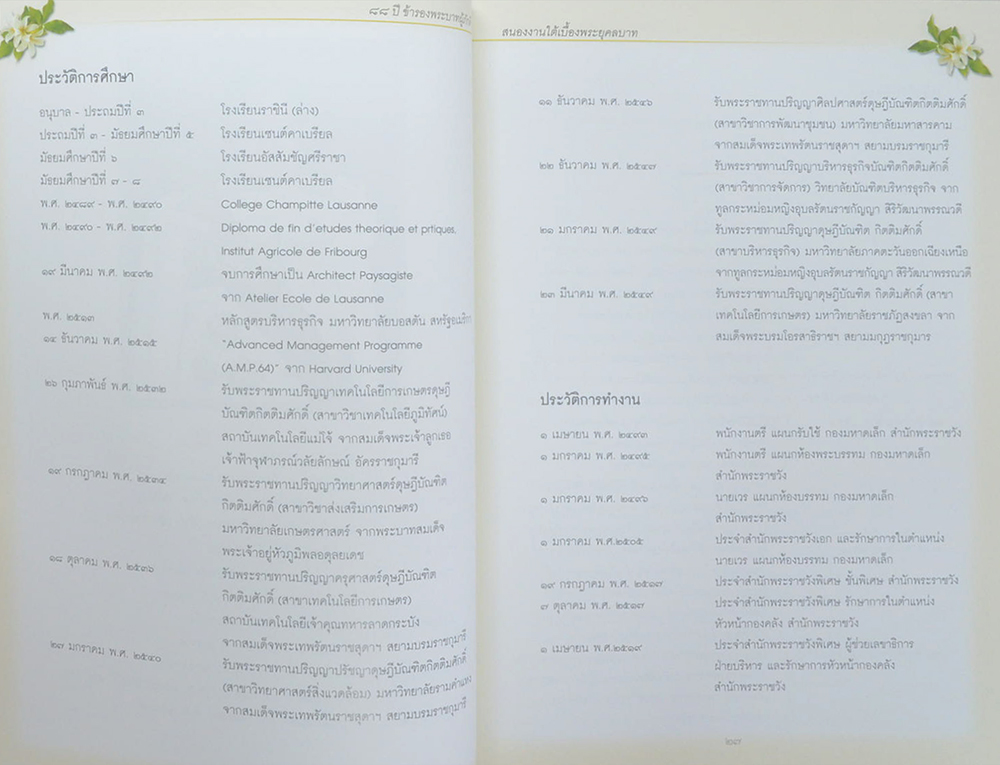 ๘๘ ปี ข้ารองพระบาทผู้
ประวัติการศึกษา
อนุบาล - ประถมปีที่ ๓ โรงเรียนราชินี (ล่าง)
ประถมปีที่ ๓ - มัธยมศึกษาปีที่ ๕ โรงเรียนเซนต์คาเบรียล
มัธยมศึกษาปีที่ ๖ โรงเรียนอัสสัมชัญศรีราชา
มัธยมศึกษาปีที่ ๗ - ๘ โรงเรียนเซนต์คาเบรียล
พ.ศ. ๒๔๘๙ - พ.ศ. ๒๔๙๐ College Champitte Lausanne
พ.ศ. ๒๔๙๐ - พ.ศ. ๒๔๙๒ Diploma de fin d'etudes theorique et prtiques,
Institut Agricole de Fribourg
๑๙ มีนาคม พ.ศ. ๒๔๙๒ จบการศึกษาเป็น Architect Paysagiste
จาก Atelier Ecole de Lausanne
พ.ศ. ๒๕๑๓ หลักสูตรบริหารธุรกิจ มหาวิทยาลัยบอสตัน สหรัฐอเมริกา
๑๔ ธันวาคม พ.ศ. ๒๕๑๕ "Advanced Management Programme
(A.M.P.64)" จาก Harvard University
๒๖ กุมภาพันธ์ พ.ศ. ๒๕๓๒ รับพระราชทานปริญญาเทคโนโลยีการเกษตรดุษฎี
บัณฑิตกิตติมศักดิ์ (สาขาวิชาเทคโนโลยีภูมิทัศน์)
สถาบันเทคโนโลยีแม่โจ้ จากสมเด็จพระเจ้าลูกเธอ
เจ้าฟ้าจุฬาภรณ์วลัยลักษณ์ อัครราชกุมารี
๑๙ กรกฎาคม พ.ศ. ๒๕๓๔ รับพระราชทานปริญญาวิทยาศาสตร์ดุษฎีบัณฑิต
กิตติมศักดิ์ (สาขาวิชาส่งเสริมการเกษตร)
มหาวิทยาลัยเกษตรศาสตร์ จากพระบาทสมเด็จ
พระเจ้าอยู่หัวภูมิพลอดุลยเดช
๑๘ ตุลาคม พ.ศ. ๒๕๓๖ รับพระราชทานปริญญาครุศาสตร์ดุษฎีบัณฑิต
กิตติมศักดิ์ (สาขาเทคโนโลยีการเกษตร)
สถาบันเทคโนโลยีเจ้าคุณทหารลาดกระบัง
จากสมเด็จพระเทพรัตนราชสุดาฯ สยามบรมราชกุมารี
๒๗ มกราคม พ.ศ. ๒๕๔๐ รับพระราชทานปริญญาปรัชญาดุษฎีบัณฑิตกิตติมศักดิ์
(สาขาวิทยาศาสตร์สิ่งแวดล้อม) มหาวิทยาลัยรามคำแหง
จากสมเด็จพระเทพรัตนราชสุดาฯ สยามบรมราชกุมารี
สนองงานใต้เบื้องพระยุคลบาท
๑๑ ธันวาคม พ.ศ. ๒๕๔๖ รับพระราชทานปริญญาศิลปศาสตร์ดุษฎีบัณฑิตกิตติมศักดิ์
(สาขาวิชาการพัฒนาชุมชน) มหาวิทยาลัยมหาสารคาม
จากสมเด็จพระเทพรัตนราชสุดาฯ สยามบรมราชกุมารี
๒๒ ธันวาคม พ.ศ. ๒๕๔๗ รับพระราชทานปริญญาบริหารธุรกิจบัณฑิตกิตติมศักดิ์
(สาขาวิชาการจัดการ) วิทยาลัยบัณฑิตบริหารธุรกิจ จาก
ทูลกระหม่อมหญิงอุบลรัตนราชกัญญา สิริวัฒนาพรรณวดี
๒๑ มกราคม พ.ศ. ๒๕๔๙ รับพระราชทานปริญญาดุษฎีบัณฑิต กิตติมศักดิ์
(สาขาบริหารธุรกิจ) มหาวิทยาลัยภาคตะวันออกเฉียงเหนือ
จากทูลกระหม่อมหญิงอุบลรัตนราชกัญญา สิริวัฒนาพรรณวดี
๒๓ มีนาคม พ.ศ. ๒๕๔๙ รับพระราชทานปริญญาดุษฎีบัณฑิต กิตติมศักดิ์ (สาขา
เทคโนโลยีการเกษตร) มหาวิทยาลัยราชภัฏสงขลา จาก
สมเด็จพระบรมโอรสาธิราชฯ สยามมกุฎราชกุมาร
ประวัติการทำงาน
๑ เมษายน พ.ศ. ๒๔๙๓ พนักงานตรี แผนกรับใช้ กองมหาดเล็ก สำนักพระราชวัง
๑ มกราคม พ.ศ. ๒๔๙๕ พนักงานตรี แผนกห้องพระบรรทม กองมหาดเล็ก
สำนักพระราชวัง
๑ มกราคม พ.ศ. ๒๔๙๖ นายเวร แผนกห้องบรรทม กองมหาดเล็ก
สำนักพระราชวัง
๑ มกราคม พ.ศ. ๒๕๐๕ ประจำสำนักพระราชวังเอก และรักษาการในตำแหน่ง
นายเวร แผนกห้องบรรทม กองมหาดเล็ก
๑๙ กรกฎาคม พ.ศ. ๒๕๑๗ ประจำสำนักพระราชวังพิเศษ ชั้นพิเศษ สำนักพระราชวัง
๗ ตุลาคม พ.ศ. ๒๕๑๗ ประจำสำนักพระราชวังพิเศษ รักษาการในตำแหน่ง
หัวหน้ากองคลัง สำนักพระราชวัง
๑ เมษายน พ.ศ.๒๕๑๙ ประจำสำนักพระราชวังพิเศษ ผู้ช่วยเลขาธิการ
ฝ่ายบริหาร และรักษาการหัวหน้ากองคลัง
สำนักพระราชวัง
๒๓๗